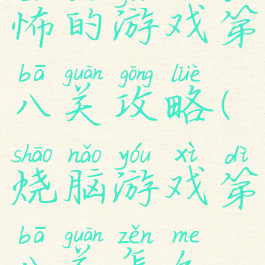 怖的游戏第
bā guān gōng lüè
八关攻略(
shāo nǎo yóu xì dì
烧脑游戏第
bā guān zěn me
八关怎么